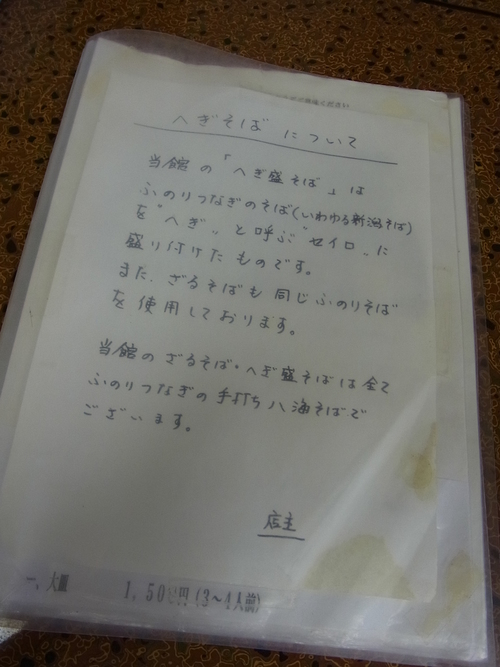 へぎそば について
当館の「へぎ盛そば」は
ふのりつなぎのそば(いわゆる新潟そば)
を〝へぎ〟と呼ぶ〝セイロ〟に
盛り付けたものです。
また、ざるそばも同じふのりそば
を使用しております。
当館のざるそば・へぎ盛そばは全て
ふのりつなぎの手打ち八海そばで
ございます。
店主
一、大皿 1,500円(3〜4人前)